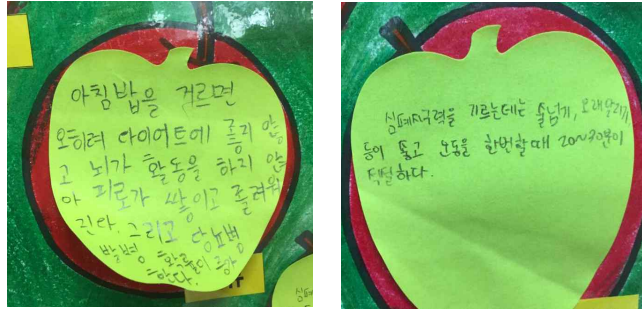 아침밥을 거르면
오히려 다이어트에 좋지 않
고 뇌가 활동을 하지 않
아 피로가 쌓이고 졸려워
진다. 그리고 당뇨병
발병 확률이 증가
한다.
심폐지구력을 기르는데는 줄넘기, 오래달리기
등이 좋고 운동을 한번할때 20~30분이
적절하다.